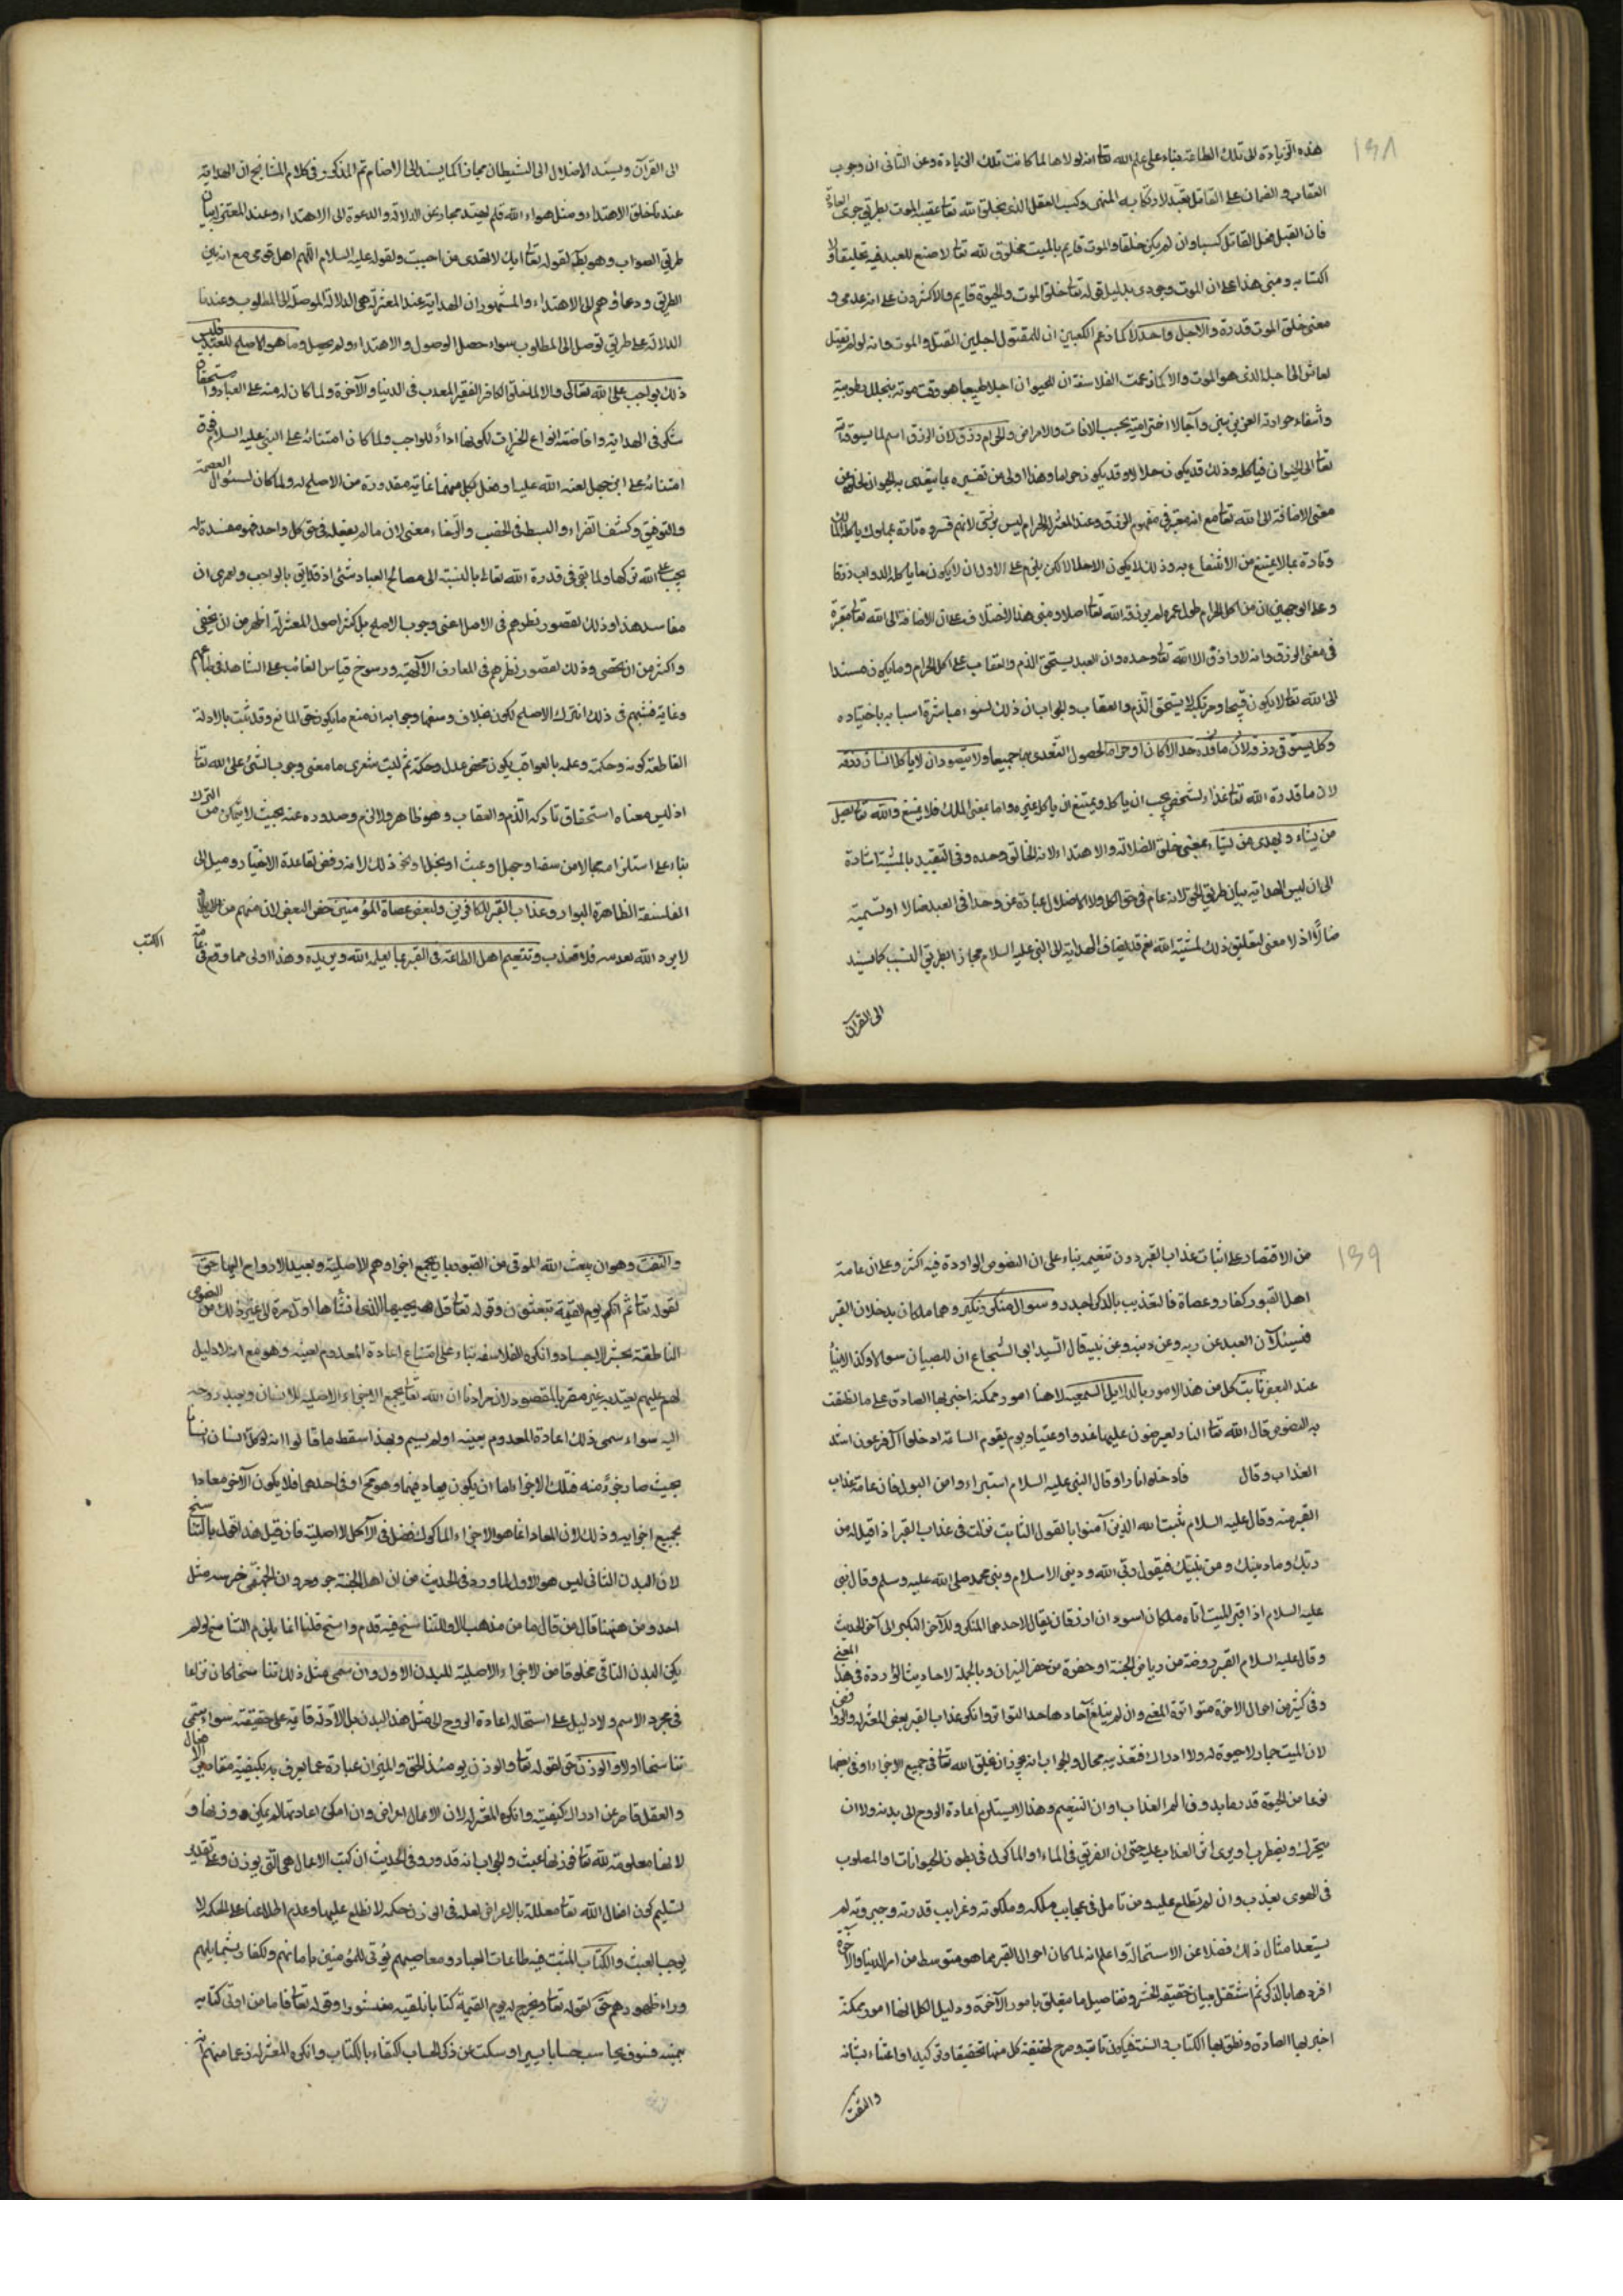 ١٣٨
هذه الزيادة الى تلك الطاعة بناء على علم الله تعا انه لولاها لما كانت تلك الزيادة وعن الثاني ان وجوب
العقاب والضمان على القاتل تعبد لارتكابه المنهى وكسبه الفعل الذى يخلق الله تعا عقيبه الموت بطريق جرى العادة
فان القتل فعل القاتل كسبا وان لم يكن خلقا والموت قايم بالميت مخلوق لله تعا لا صنع للعبد فيه تخليقا ولا
اكتسابه ومبنى هذا على ان الموت وجودى بدليل قوله تعا خلق الموت والحيوة قايم والاكثرون على انه عدمى و
معنى خلق الموت قدرة والاجل واحد لا كما زعم الكعبى ان للمقتول اجلين القتل والموت وانه لو لم يقتل
لعاش الى اجله الذى هو الموت ولا كما زعمت الفلاسفة ان للحيوان اجلا طبيعيا هو وقت موته بتحلل رطوبته
وانطفاء حرارته الغريزيتين وآجالا اخترامية بحسب الافات والامراض والحرام رزق لان الرزق اسم لما يسوقه الله
تعا الى الحيوان فياكله وذلك قد يكون حلالا وقد يكون حراما وهذا اولى من تفسيره بما يتغذى به الحيوان لخلوه عن
معنى الاضافة الى الله تعا مع انه معتبر في مفهوم الرزق وعند المعتزلة الحرام ليس برزق لانهم فسروه تارة بمملوك ياكله المالك
وتارة بما لا يمتنع من الانتفاع به وذلك لا يكون الا حلالا لكن يلزم على الاول ان لا يكون ما ياكله الدواب رزقا
وعلى الوجهين ان من اكل الحرام طول عمره لم يرزقه الله تعا اصلا ومبنى هذا الاختلاف على ان الاضافة الى الله تعا معتبرة
في معنى الرزق وانه لا رازق الا الله تعا وحده وان العبد يستحق الذم والعقاب على اكل الحرام وما يكون مستندا
الى الله تعا لا يكون قبيحا ومرتكبه لا يستحق الذم والعقاب والجواب ان ذلك لسوء مباشرة اسبابه باختياره
وكل يستوفى رزقه لان ما قدره حلالا كان او حراما لحصول التغذى بهما جميعا ولا يتصور ان لا ياكل انسان رزقه
لان ما قدره الله تعا غذاء لشخص يجب ان ياكله ويمتنع ان ياكله غيره واما بمعنى الملك فلا يمتنع والله تعا يضل
من يشاء ويهدى من يشاء بمعنى خلق الضلالة والاهتداء لانه الخالق وحده وفي التقييد بالمشية اشارة
الى ان ليس الهداية بيان طريق الحق لانه عام في حق الكل ولا الاضلال عبارة عن وجدان العبد ضالا او تسميته
ضالا اذ لا معنى لتعليق ذلك بمشية الله نعم قد يضاف الهداية الى النبى عليه السلام مجازا بطريق التسبب كما يسند
الى القرآن
الى القرآن ويسند الاضلال الى الشيطان مجازا كما يسند الى الاصنام ثم المذكور في كلام المشايخ ان الهداية
عندنا خلق الاهتداء ومثل هداه الله فلم يهتد مجاز عن الدلالة والدعوة الى الاهتداء وعند المعتزلة بيان
طريق الصواب وهو بطل لقوله تعا انك لا تهدى من احببت ولقوله عليه السلام اللهم اهد قومى مع انه بين
الطريق ودعاهم الى الاهتداء والمشهور ان الهداية عند المعتزلة هى الدلالة الموصلة الى المطلوب وعندنا
الدلالة على طريق توصل الى المطلوب سواء حصل الوصول والاهتداء ولم يحصل وما هو الاصلح للعبد فليس
ذلك بواجب على الله تعالى والا لما خلق الكافر الفقير المعذب في الدنيا والآخرة ولما كان له منة على العباد واستحقاق
شكر في الهداية وافاضة انواع الخيرات لكونها اداء للواجب ولما كان امتنانه على النبى عليه السلام فوق
امتنانه على ابى جهل لعنه الله عليه اذ فعل بكل منهما غاية مقدوره من الاصلح له ولما كان لسؤال العصمة
والتوفيق وكشف الضراء والبسط في الخصب والرخاء معنى لان ما لم يفعله في حق كل واحد فهو مفسدة له
يجب على الله تركها ولما بقى في قدرة الله تعالى بالنسبة الى مصالح العباد شئ اذ قد اتى بالواجب ولعمرى ان
مفاسد هذا وذلك لقصور نظرهم في الاصل اعنى وجوب الاصلح بل اكثر اصول المعتزلة اظهر من ان يخفى
واكثر من ان يحصى وذلك لقصور نظرهم في المعارف الالهية ورسوخ قياس الغائب على الشاهد في طباعهم
وغاية تشبثهم في ذلك ان ترك الاصلح يكون بخلا وسفها وجوابه ان منع ما يكون حق المانع وقد ثبت بالادلة
القاطعة كرمه وحكمته وعلمه بالعواقب يكون محض عدل وحكمة ثم ليت شعرى ما معنى وجوب الشئ على الله تعا
اذ ليس معناه استحقاق تاركه الذم والعقاب وهو ظاهر ولا لزوم صدوره عنه بحيث لا يتمكن من الترك
بناء على استلزامه محالا من سفه او جهل او عبث او بخل او نحو ذلك لانه رفض لقاعدة الاختيار وميل الى
الفلسفة الظاهرة البوار وعذاب القبر للكافرين ولبعض عصاة المؤمنين خص البعض لان منهم من
لا يريد الله تعذيبه فلا يعذب وتنعيم اهل الطاعة في القبر بما يعلمه الله ويريده وهذا اولى مما وقع في عامة
الكتب
١٣٩
من الاقتصار على اثبات عذاب القبر دون تنعيمه بناء على ان النصوص الواردة فيه اكثر وعلى ان عامة
اهل القبور كفار وعصاة فالتعذيب بالذكر اجدر وسوال منكر ونكير وهما ملكان يدخلان القبر
فيسئلان العبد عن ربه وعن دينه وعن نبيه قال السيد ابى الشجاع ان للصبيان سوالا وكذا للانبياء
عند البعض ثابت كل من هذه الامور بالدلايل السمعية لانها امور ممكنة اخبر بها الصادق على ما نطقت
به النصوص قال الله تعا النار يعرضون عليها غدوا وعشيا ويوم يقوم الساعة ادخلوا آل فرعون اشد
العذاب وقال فادخلوا نارا وقال النبى عليه السلام استنزهوا من البول فان عامة عذاب
القبر منه وقال عليه السلام يثبت الله الذين آمنوا بالقول الثابت نزلت في عذاب القبر اذا قيل له من
ربك وما دينك ومن نبيك فيقول ربى الله ودينى الاسلام ونبى محمد صلى الله عليه وسلم وقال نبى
عليه السلام اذا قبر الميت اتاه ملكان اسودان ازرقان يقال لاحدهما المنكر وللآخر النكير الى آخر الحديث
وقال عليه السلام القبر روضة من رياض الجنة او حفرة من حفر النيران وبالجملة الاحاديث الواردة في هذا المعنى
وفي كثير من احوال الاخرة متواترة المعنى وان لم يبلغ آحادها حد التواتر وانكر عذاب القبر بعض المعتزلة والروافض
لان الميت جماد لا حيوة له ولا ادراك فتعذيبه محال والجواب انه يجوز ان يخلق الله تعا في جميع الاجزاء او في بعضها
نوعا من الحيوة قدر ما يدرك الم العذاب او ان التنعيم وهذا لا يستلزم اعادة الروح الى بدنه ولا ان
يتحرك ويضطرب او يرى اثر العذاب عليه حتى ان الغريق في الماء او الماكول في بطون الحيوانات والمصلوب
في الهوى يعذب وان لم نطلع عليه ومن تامل في عجايب ملكه وملكوته وغرايب قدرته وجبروته لم
يستبعد امثال ذلك فضلا عن الاستحالة واعلم انه لما كان احوال القبر مما هو متوسط من امر الدنيا والآخرة
افردها بالذكر ثم اشتغل ببيان حقيقة الحشر وتفاصيل ما يتعلق بامور الآخرة ودليل الكل انها امور ممكنة
اخبر بها الصادق ونطق بها الكتاب والسنة فيكون ثابتة وصرح بحقيقة كل منها تحقيقا وتوكيدا واعتناء بشانه
والبعث
والبعث وهو ان يبعث الله الموتى من القبور بان يجمع اجزاءهم الاصلية ويعيد الارواح اليها حق
لقوله تعا ثم انكم يوم القيمة تبعثون وقوله تعا قل يحييها الذى انشأها اول مرة الى غير ذلك من النصوص
الناطقة بحشر الاجساد وانكره الفلاسفة بناء على امتناع اعادة المعدوم بعينه وهو مع انه لا دليل
لهم عليهم يعتد به غير مضر بالمقصود لان مرادنا ان الله تعا يجمع الاجزاء الاصلية للانسان ويعيد روحه
اليه سواء سمى ذلك اعادة المعدوم بعينه او لم يسم وبهذا سقط ما قالوا انه لو اكل انسان انسانا
بحيث صار جزءً منه فتلك الاجزاء اما ان يكون يعاد فيهما وهو مح او في احدهما فلا يكون الآخر معادا
بجميع اجزايه وذلك لان المعاد انما هو الاجزاء الماكولة فضل في الآكل لا اصلية فان قيل هذا قول بالتناسخ
لان البدن الثانى ليس هو الاول لما ورد في الحديث من ان اهل الجنة جرد مرد وان الجهنمى ضرسه مثل
احد ومن ههنا قال من قال ما من مذهب الا وللتناسخ فيه قدم راسخ قلنا انما يلزم التناسخ لو لم
يكن البدن الثانى مخلوقا من الاجزاء الاصلية للبدن الاول وان سمى مثل ذلك تناسخا كان نزاعا
في مجرد الاسم ولا دليل على استحالة اعادة الروح الى مثل هذا البدن بل الادلة قايمة على حقيقته سواء سمى
تناسخا او لا والوزن حق لقوله تعا والوزن يومئذ الحق والميزان عبارة عما يعرف به كيفية مقادير الاعمال
والعقل قاصر عن ادراك كيفيته وانكره المعتزلة لان الاعمال اعراض وان امكن اعادتها لم يمكن وزنها و
لانها معلومة لله تعا فوزنها عبث والجواب انه قد ورد في الحديث ان كتب الاعمال هى التى يوزن وعلى تقدير
تسليم كون افعال الله تعا معللة بالاغراض لعل في الوزن حكمة لا نطلع عليها وعدم اطلاعنا على الحكمة لا
يوجب العبث والكتاب المثبت فيه طاعات العباد ومعاصيهم يؤتى للمؤمنين بايمانهم وللكفار بشمايلهم
وراء ظهورهم حق لقوله تعا ونخرج له يوم القيمة كتابا يلقيه منشورا وقوله تعا فاما من اوتى كتابه
بيمينه فسوف يحاسب حسابا يسيرا وسكت عن ذكر الحساب اكتفاء بالكتاب وانكره المعتزلة زعما منهم انه